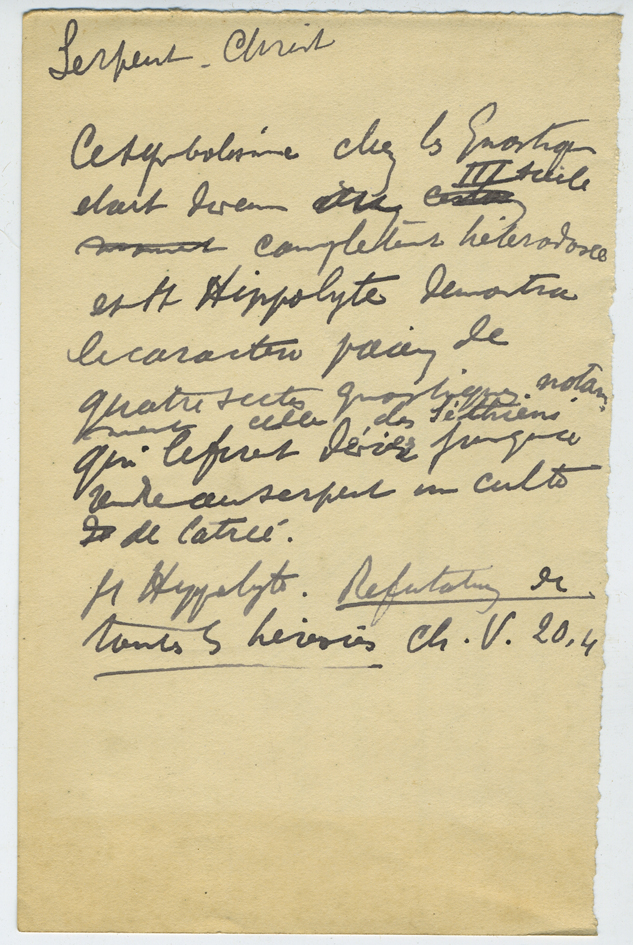 Serpent - Christ
Ce symbolisme chez les Gnostiques
était devenu au IIIe siècle
complètement hétérodoxe
et St Hippolyte démontra
le caractère païen de
quatre sectes gnostiques notam
ment celle des Séthiens
qui le firent dévier jusqu'à
rendre au serpent un culte
de latrie.
St Hippolyte. Réfutation de
toutes les hérésies Ch. V. 20,4